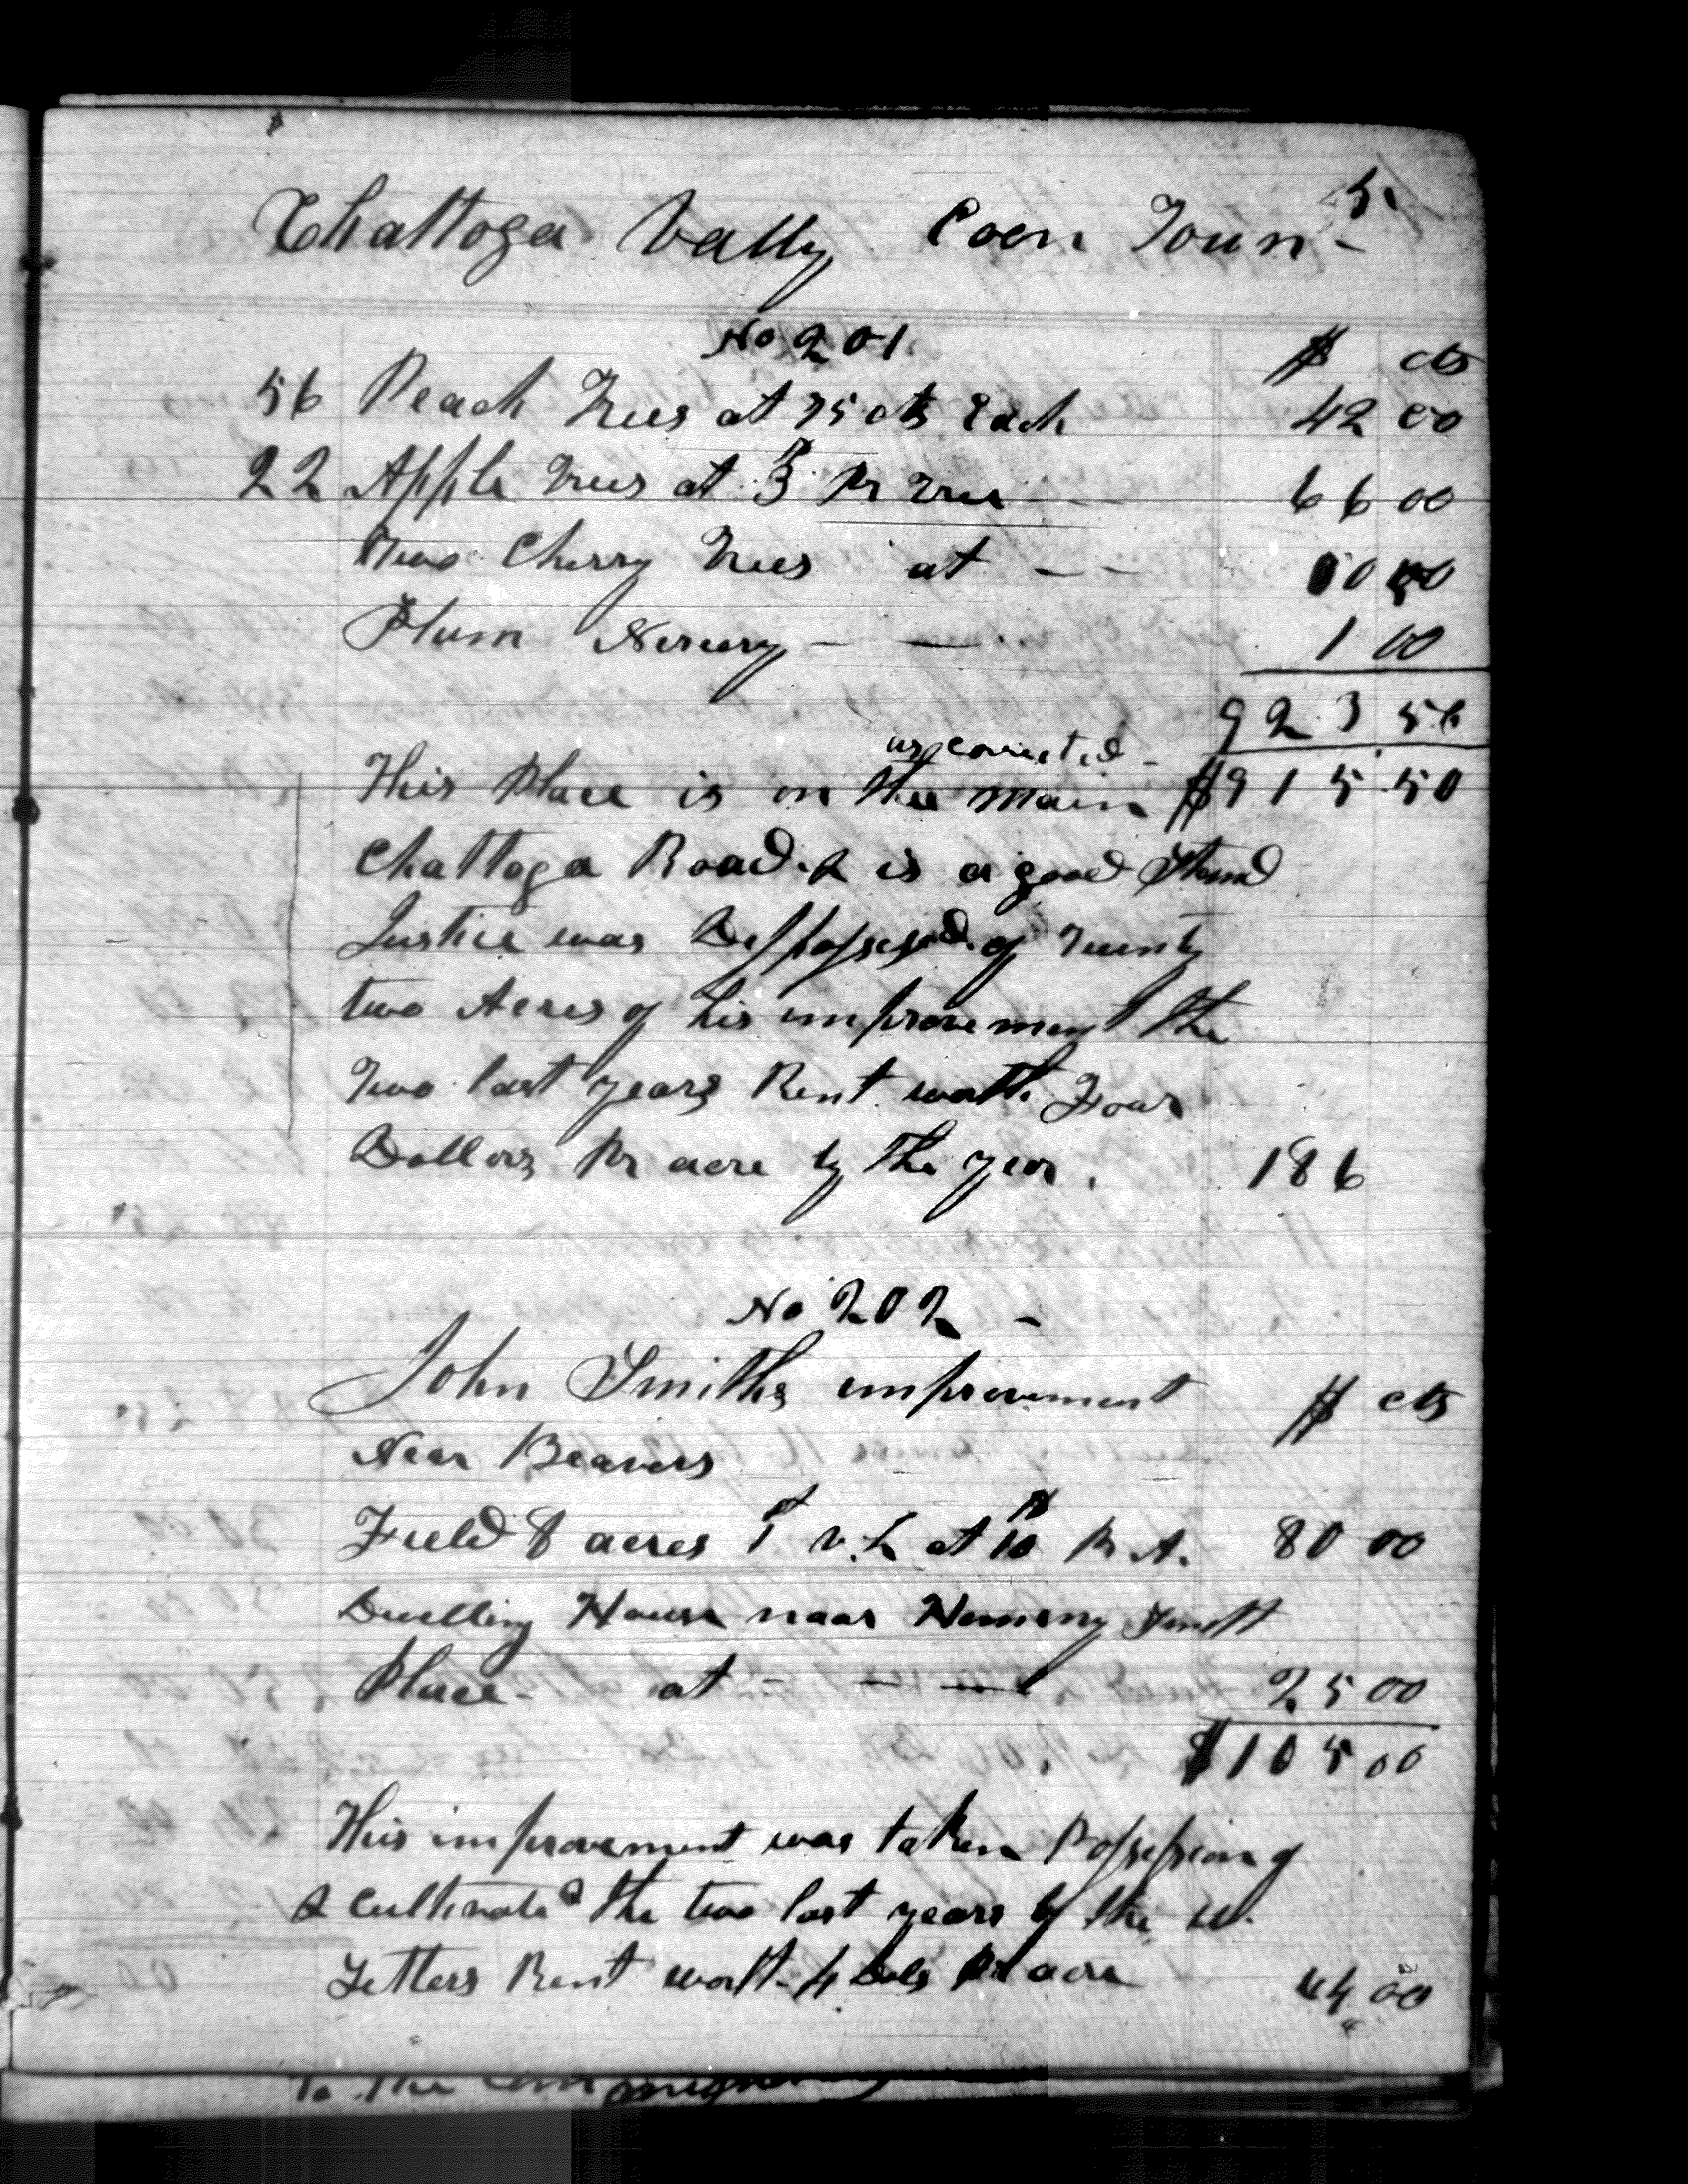 5.
Chattoga Vally Coen Town -
No 201
$ cts
56 Peach Trees at 75 cts Each 42 00
22 Apple Trees at $3 Pr Tree - - 66 00
Two Cherry Trees at - - 00 50
Plum Nercery - - 1 00
923 50
as corrected -
This Place is on the main $915.50
Chattoga Road & is a good Stand
Justice was Dispossessed of Twenty
two Acres of his improvement the
Two last years Rent worth Four
Dollars Pr acre by the year. 186
No 202 -
John Smiths improvement $ cts
Near Beavers
Field 8 acres 1st r. L at $10 Pr A. 80 00
Dwelling House near Smith
Place - at - - - 25 00
$105 00
This improvement was taken Possession of
& cultivated the two last years by the w.
Setters Rent worth 4 Dols Pr acre 44 00
To the